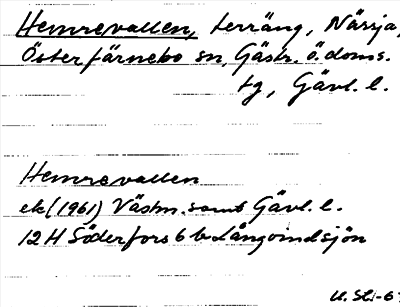 Hemrevallen, terräng, Näsja,
Österfärnebo sn, Gästr. ö. doms.
tg, Gävl. l.
Hemrevallen
ek (1961) Västm. samt Gävl. l.
12 H Söderfors 6 b Långvindsjön